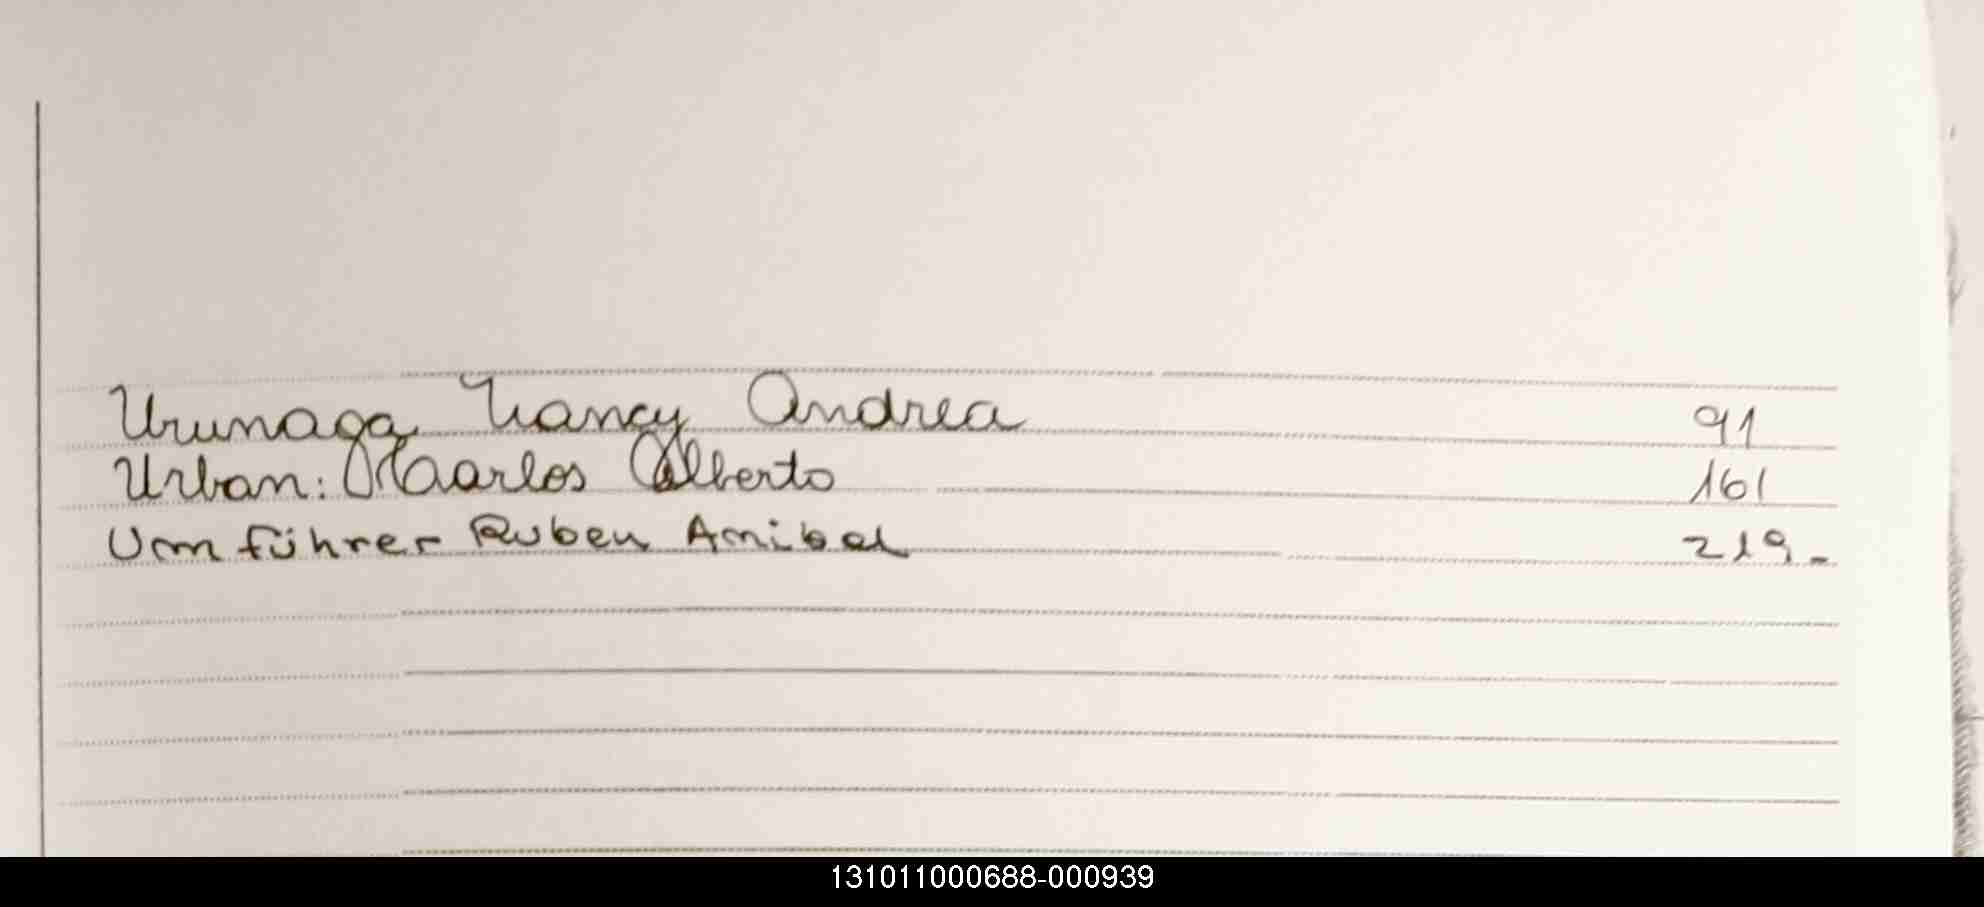 Urunaga Nancy Andrea 91
Urban: Carlos Alberto 161
Urnführer Ruben Anibal 219-
131011000688-000939